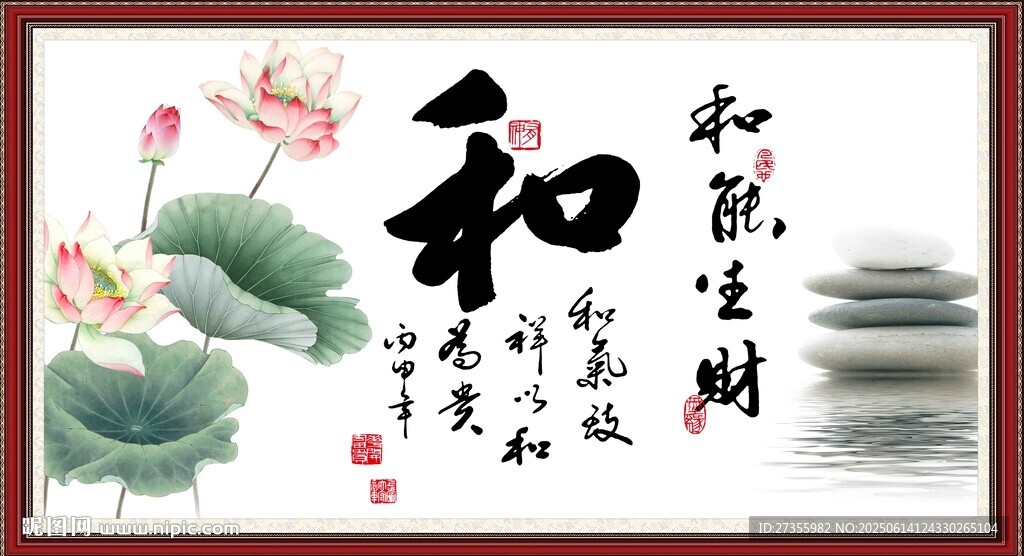 和能生财
和
和氣致
祥以和
為贵
丙申年
昵图网 www.nipic.com
ID:27355982 NO:20250614124330265104